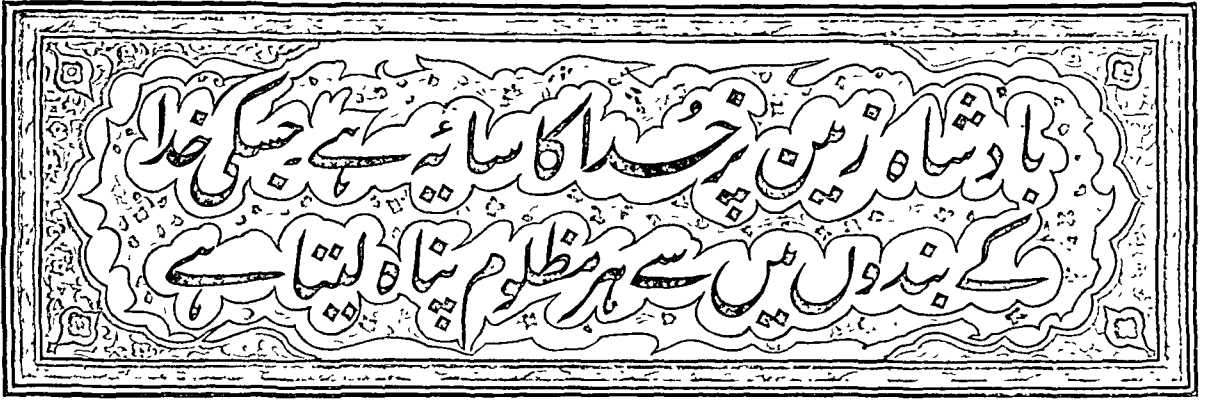 بادشاہ زمین پر خُدا کا سائہ ہے جسکی خدا
کے بندوں میں سے ہر مظلوم پناہ لیتا ہے